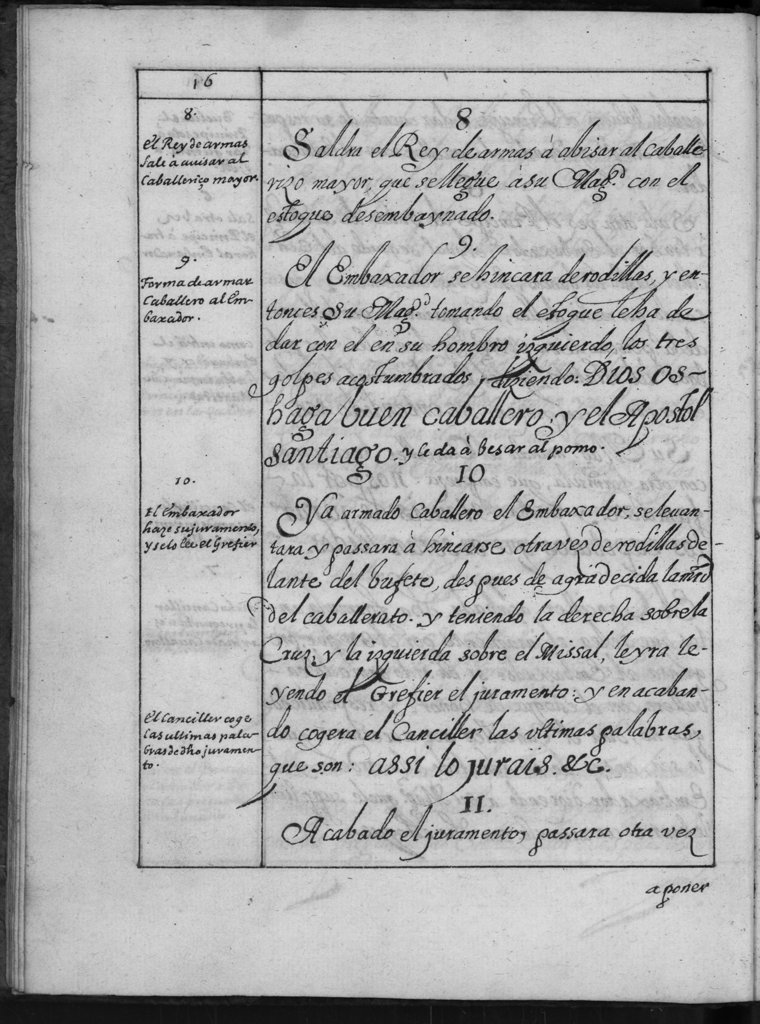 16
8.
El Rey de armas
sale à auisar al
Caballeriço mayor.
8
Saldra el Rey de armas à abisar al Caballe-
rizo mayor, que se llegue à su Mag.d con el
estoque desembaynado.
9.
Forma de armar
Caballero al Em-
baxador.
9.
El Embaxador se hincara de rodillas, y en-
tonces Su Mag.d tomando el estoque le ha de
dar con el en su hombro izquierdo, los tres
golpes acostumbrados, diziendo: Dios os-
haga buen caballero, y el Apostol
santiago. y le da à besar al pomo.
10.
El Embaxador
haze su juramento,
y selo lee el Grefier
10
Ya armado Caballero el Embaxador, se levan-
tara y passara à hincarse otra vez de rodillas de-
lante del bufete, despues de agradecida la mrd
del caballerato. y teniendo la derecha sobre la
Cruz, y la izquierda sobre el Missal, le yra le-
yendo el Grefier el juramento: y en acaban-
El Canciller coge
las ultimas pala-
bras de dho juramen-
to.
do cogera el Canciller las vltimas palabras,
que son: assi lo jurais. &c.
11.
Acabado el juramento, passara otra vez
a poner